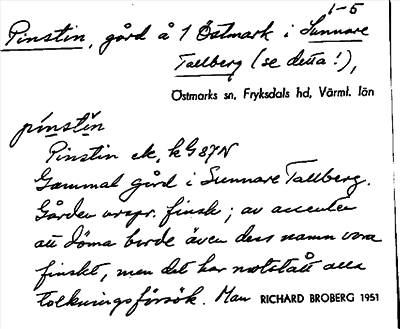 1-5
Pinstin, gård å 1 Östmark i Sunnare
Tallberg (se detta!),
Östmarks sn, Fryksdals hd, Värml. län
pinstin
Pinstin ek, kG87N
Gammal gård i Sunnare Tallberg.
Gården urspr. finsk; av accenten
att döma borde även dess namn vara
finskt, men det har motstått alla
tolkningsförsök. Man RICHARD BROBERG 1951